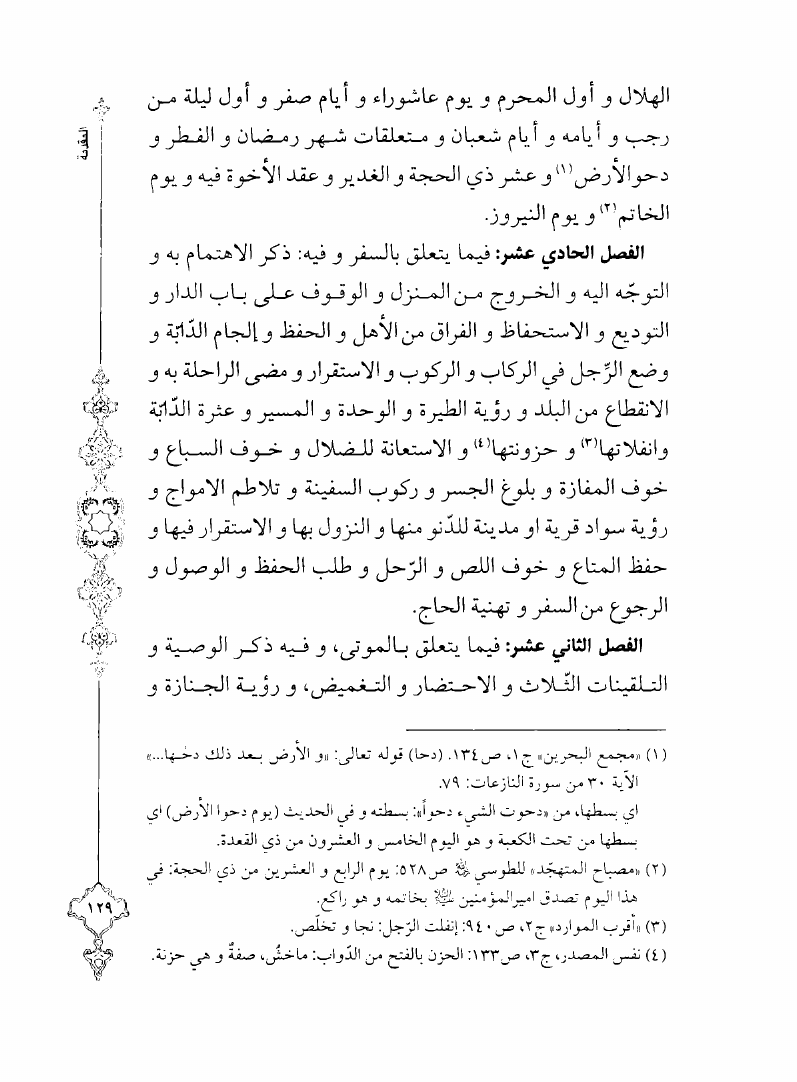 الهلال و أول المحرم و يوم عاشوراء و أيام صفر و أول ليلة من
رجب و أيامه و أيام شعبان و متعلقات شهر رمضان و الفطر و
دحوالأرض(١) و عشر ذي الحجة و الغدير و عقد الأخوة فيه و يوم
الخاتم(٢) و يوم النيروز.
الفصل الحادي عشر: فيما يتعلق بالسفر و فيه: ذكر الاهتمام به و
التوجّه اليه و الخروج من المنزل و الوقوف على باب الدار و
التوديع و الاستحفاظ و الفراق من الأهل و الحفظ و إلجام الدّابّة و
وضع الرِّجل في الركاب و الركوب و الاستقرار و مضى الراحلة به و
الانقطاع من البلد و رؤية الطيرة و الوحدة و المسير و عثرة الدّابّة
وانفلاتها(٣) و حزونتها(٤) و الاستعانة للضلال و خوف السباع و
خوف المفازة و بلوغ الجسر و ركوب السفينة و تلاطم الامواج و
رؤية سواد قرية او مدينة للدّنو منها و النزول بها و الاستقرار فيها و
حفظ المتاع و خوف اللص و الرّحل و طلب الحفظ و الوصول و
الرجوع من السفر و تهنية الحاج.
الفصل الثاني عشر: فيما يتعلق بالموتى، و فيه ذكر الوصية و
التلقينات الثّلاث و الاحتضار و التغميض، و رؤية الجنازة و
(١) «مجمع البحرين» ج١، ص١٣٤. (دحا) قوله تعالى: «و الأرض بعد ذلك دحٰها...»
الآية ٣٠ من سورة النازعات: ٧٩.
اي بسطها، من «دحوت الشيء دحواً»: بسطته و في الحديث (يوم دحوا الأرض) اي
بسطها من تحت الكعبة و هو اليوم الخامس و العشرون من ذي القعدة.
(٢) «مصباح المتهجّد» للطوسي ص٥٢٨: يوم الرابع و العشرين من ذي الحجة: في
هذا اليوم تصدق اميرالمؤمنين بخاتمه و هو راكع.
(٣) «أقرب الموارد» ج٢، ص٩٤٠: إنفلت الرّجل: نجا و تخلّص.
(٤) نفس المصدر، ج٣، ص١٣٣: الحزن بالفتح من الدّواب: ماخشُن، صفةٌ و هي حزنة.
المقدمة
١٢٩